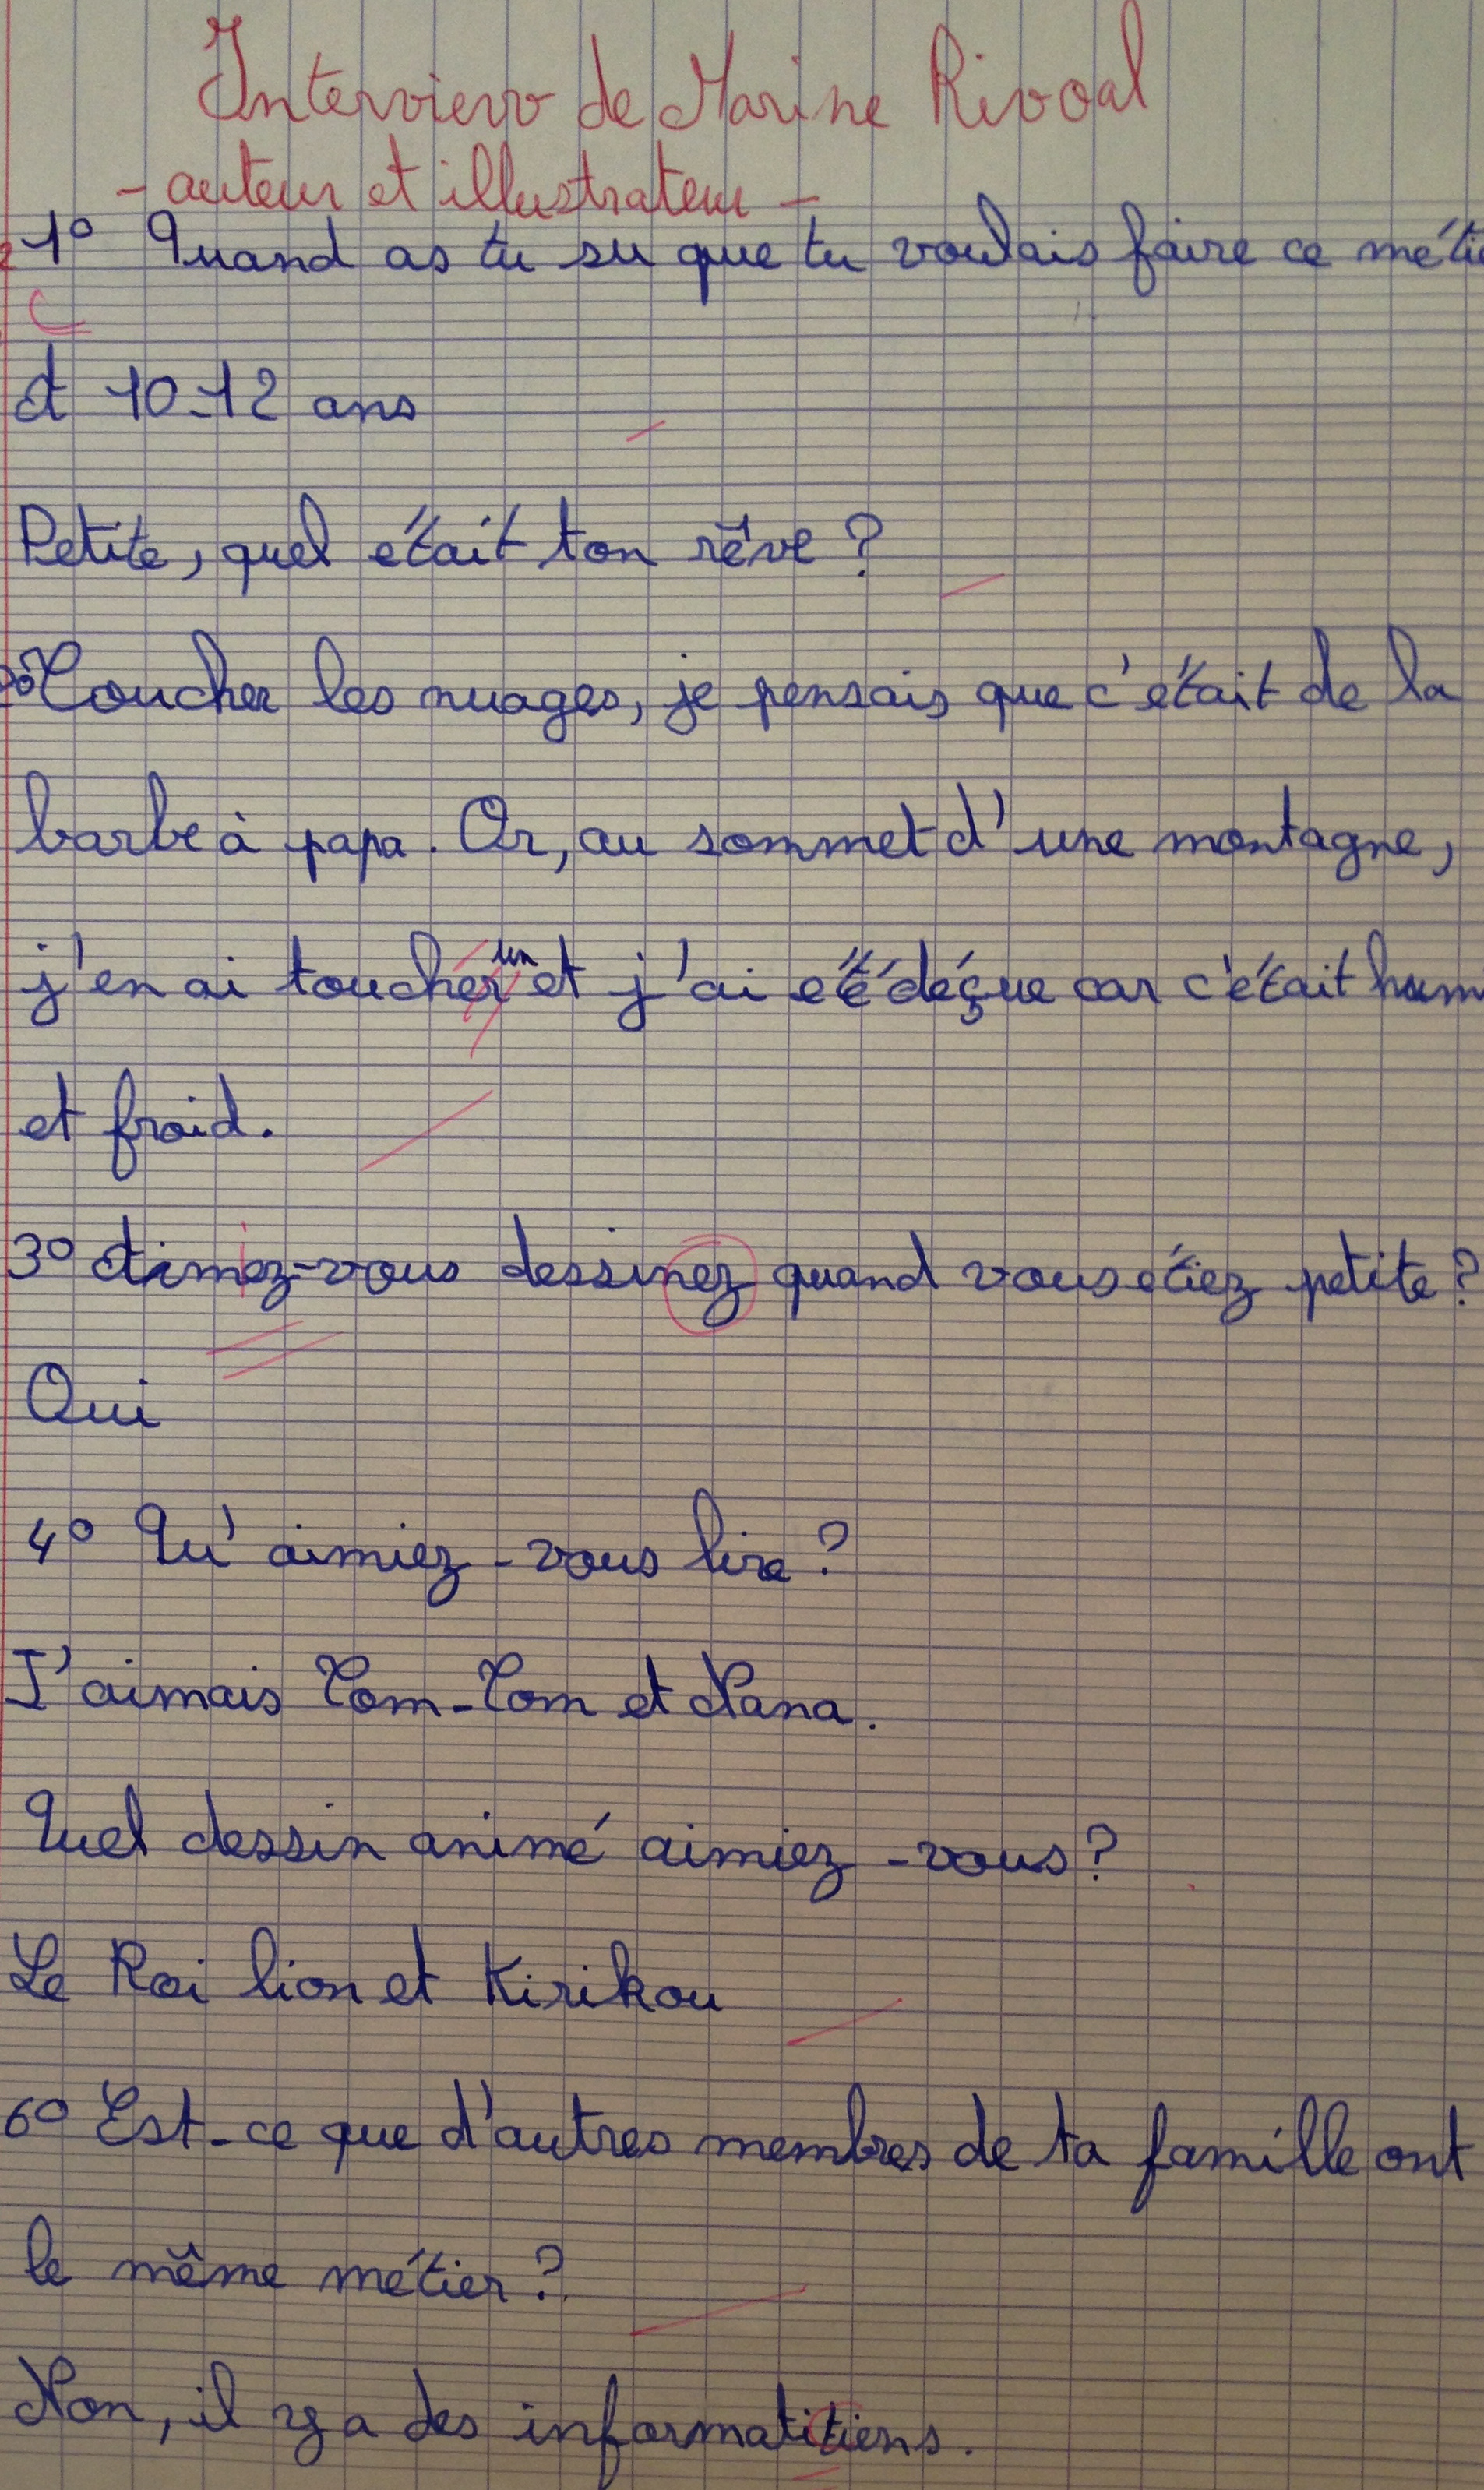 Interview de Marine Rivoal
- auteur et illustrateur -
1° Quand as tu su que tu voulais faire ce méti
A 10-12 ans
Petite, quel était ton rêve ?
Toucher les nuages, je pensais que c'était de la
barbe à papa. Or, au sommet d'une montagne,
j'en ai touché un et j'ai été déçue car c'était hum
et froid.
3° Aimiez-vous dessinez quand vous étiez petite ?
Oui
4° Qu'aimiez-vous lire ?
J'aimais Tom-Tom et Nana.
Quel dessin animé aimiez-vous ?
Le Roi lion et Kirikou
6° Est-ce que d'autres membres de ta famille ont
le même métier ?
Non, il y a des informatitiens.